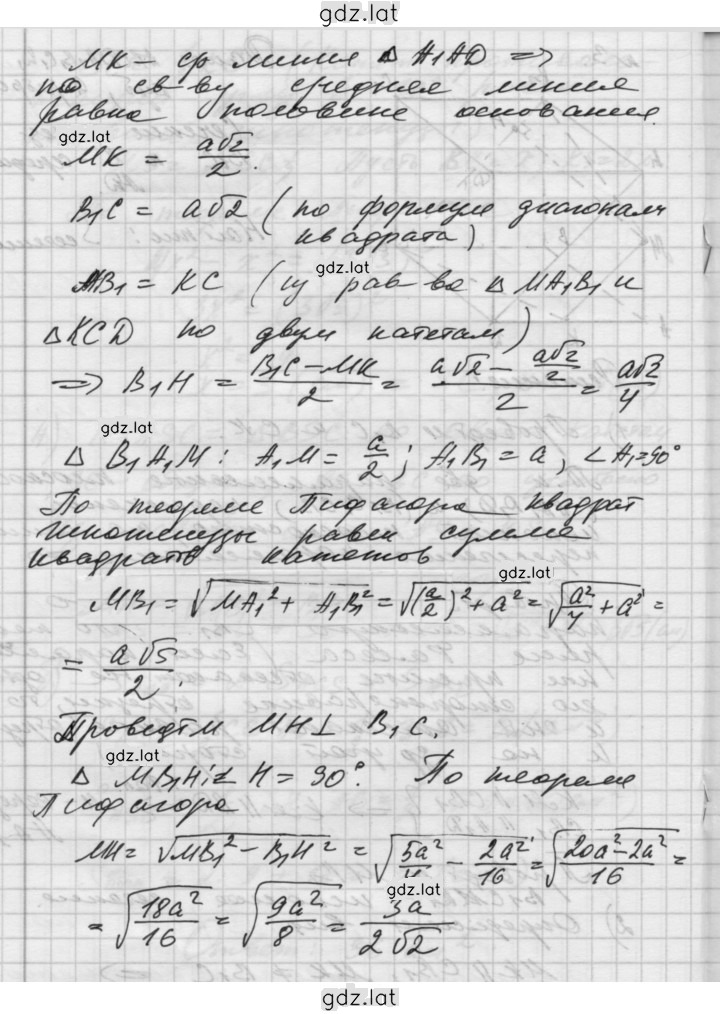 gdz.lat
MK – ср линия △ A₁AD ⇒
по св-ву средняя линия
равна половине основания.
gdz.lat
MK = a√2/2.
B₁C = a√2 (по формуле диагонали
квадрата)
gdz.lat
MB₁ = KC (из рав-ва △ MA₁B₁ и
△KCD по двум катетам)
⇒ B₁H = (B₁C – MK)/2 = (a√2 – a√2/2)/2 = a√2/4
gdz.lat
△ B₁A₁M: A₁M = a/2; A₁B₁ = a, ∠A₁=90°
По теореме Пифагора квадрат
гипотенузы равен сумме
квадратов катетов
gdz.lat
MB₁ = √(MA₁² + A₁B₁²) = √((a/2)² + a²) = √(a²/4 + a²) =
= a√5/2.
Проведём MH⊥ B₁C.
gdz.lat
△ MB₁H: ∠H = 90°. По теореме
Пифагора
MH = √(MB₁² – B₁H²) = √(5a²/4 – 2a²/16) = √((20a² – 2a²)/16) =
gdz.lat
= √(18a²/16) = √(9a²/8) = 3a/(2√2)
gdz.lat